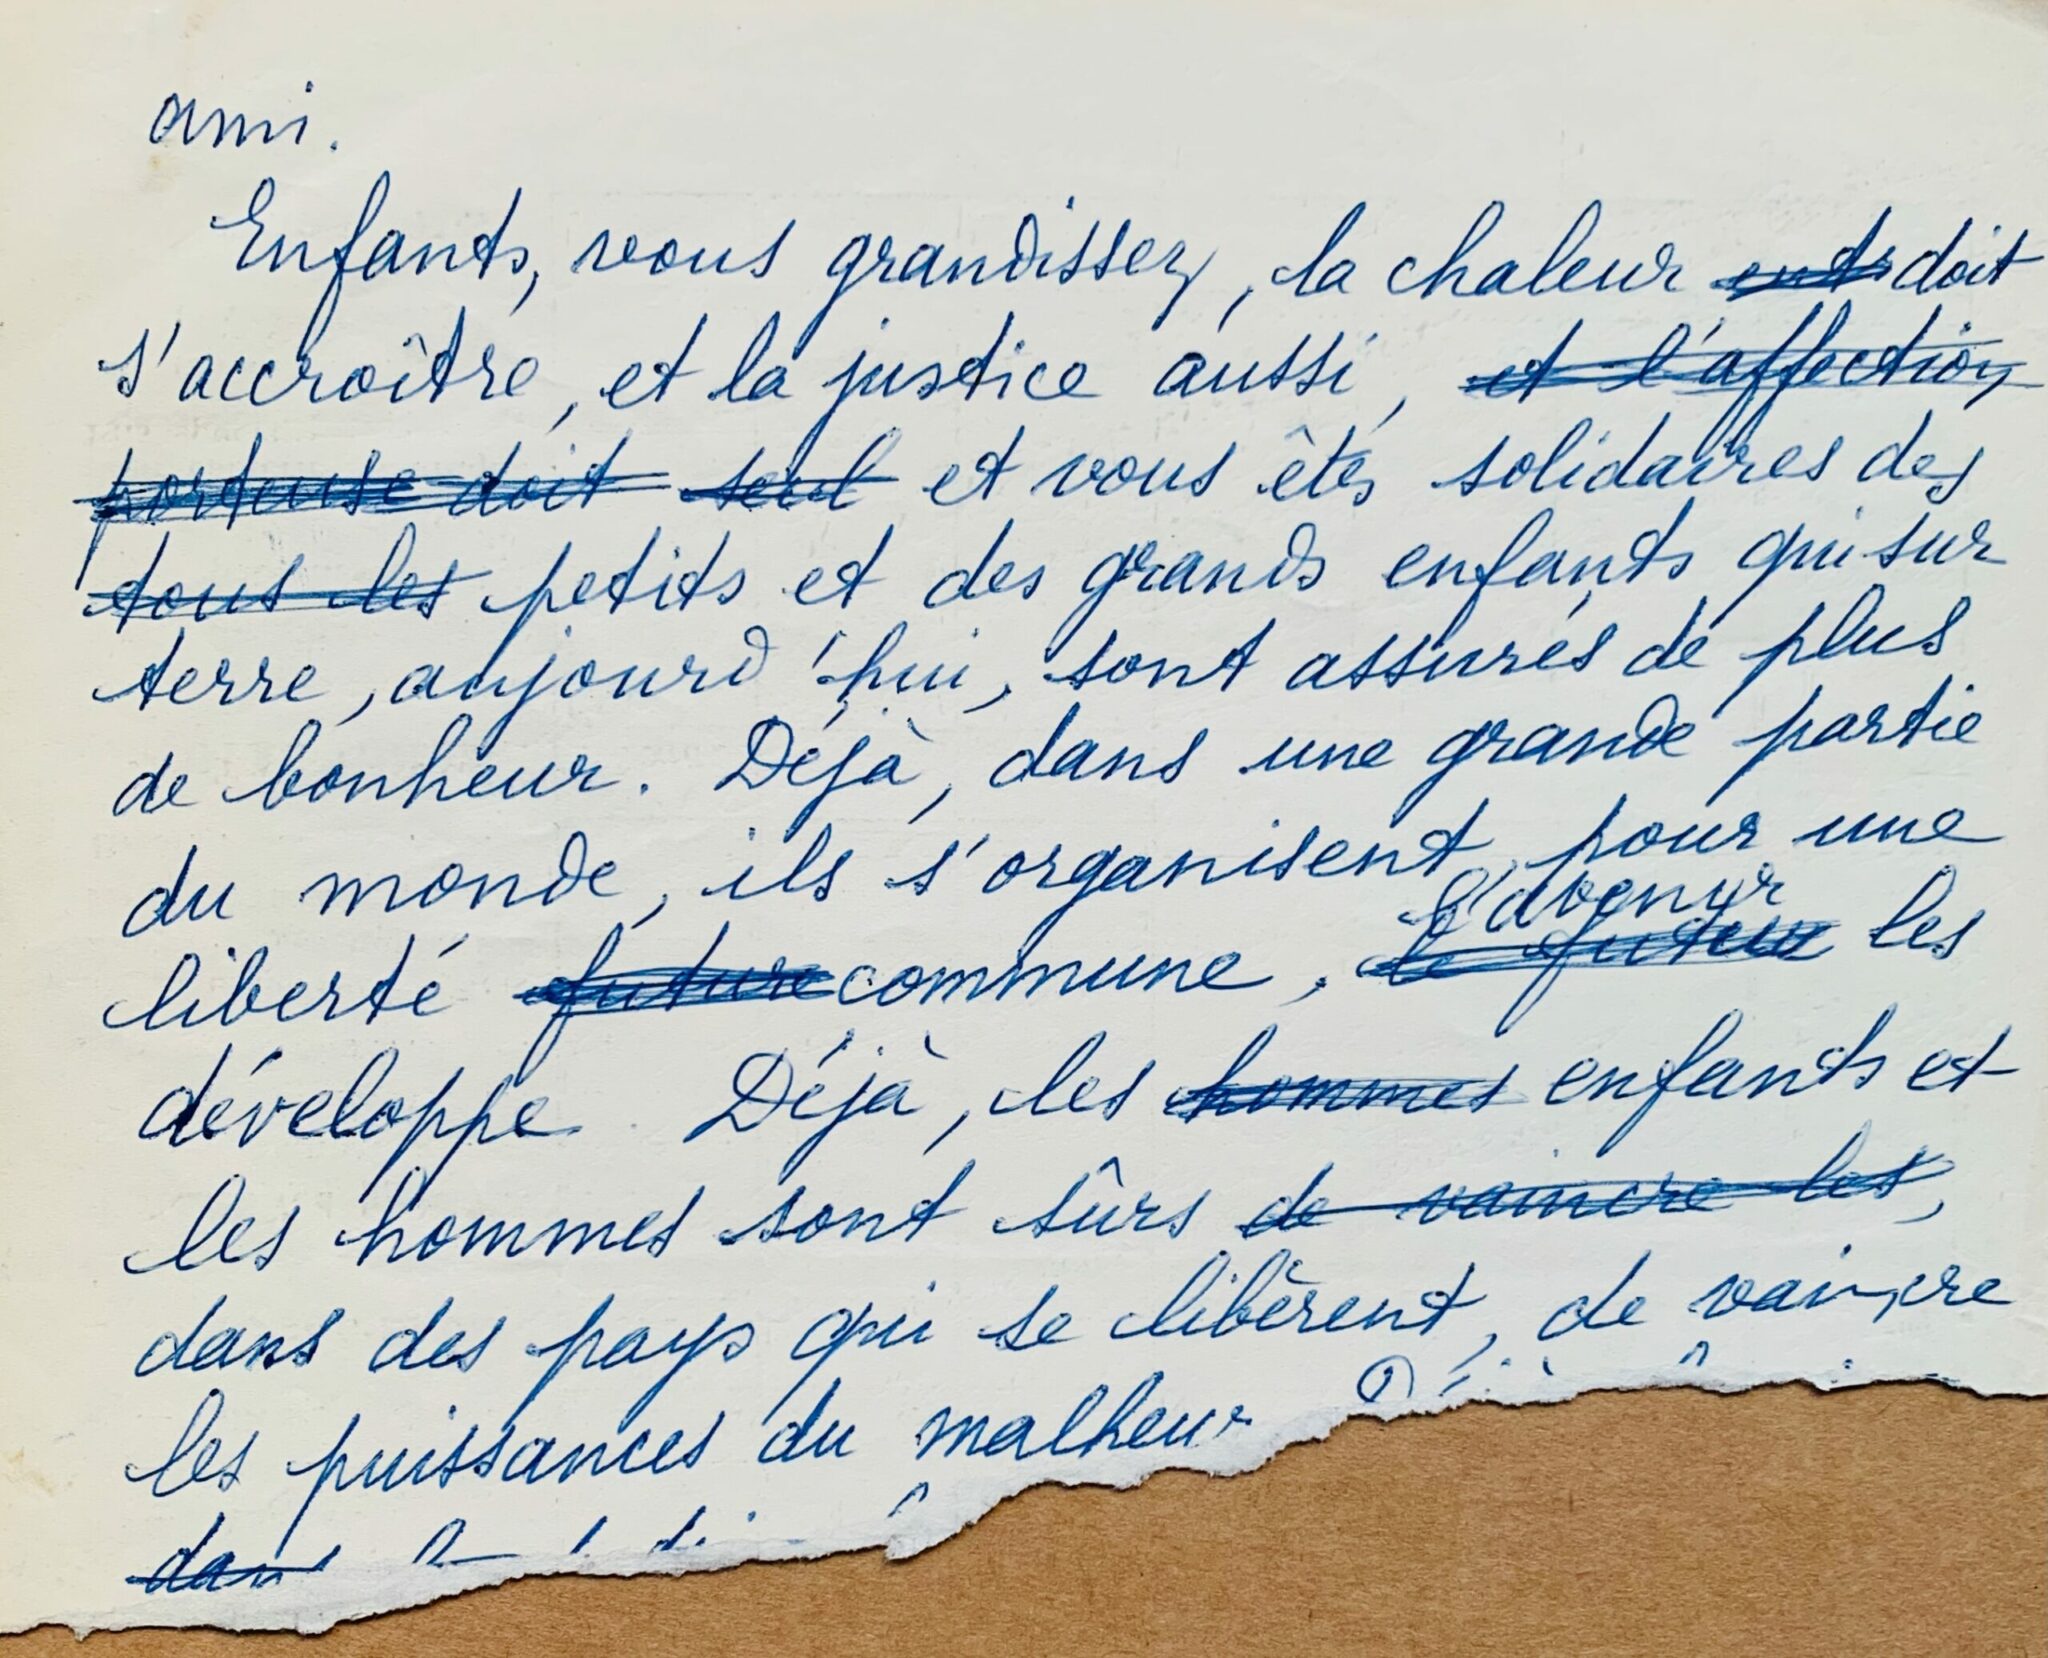 ami.
Enfants, vous grandissez, la chaleur doit
s'accroître, et la justice aussi, et l'affection
porteuse doit seul et vous êtes solidaires des
tous les petits et des grands enfants qui sur
terre, aujourd'hui, sont assurés de plus
de bonheur. Déjà, dans une grande partie
du monde, ils s'organisent pour une
l'avenir
liberté future commune, le futur les
développe. Déjà, les hommes enfants et
les hommes sont sûrs de vaincre les,
dans des pays qui se libèrent, de vaincre
les puissances du malheur
dans